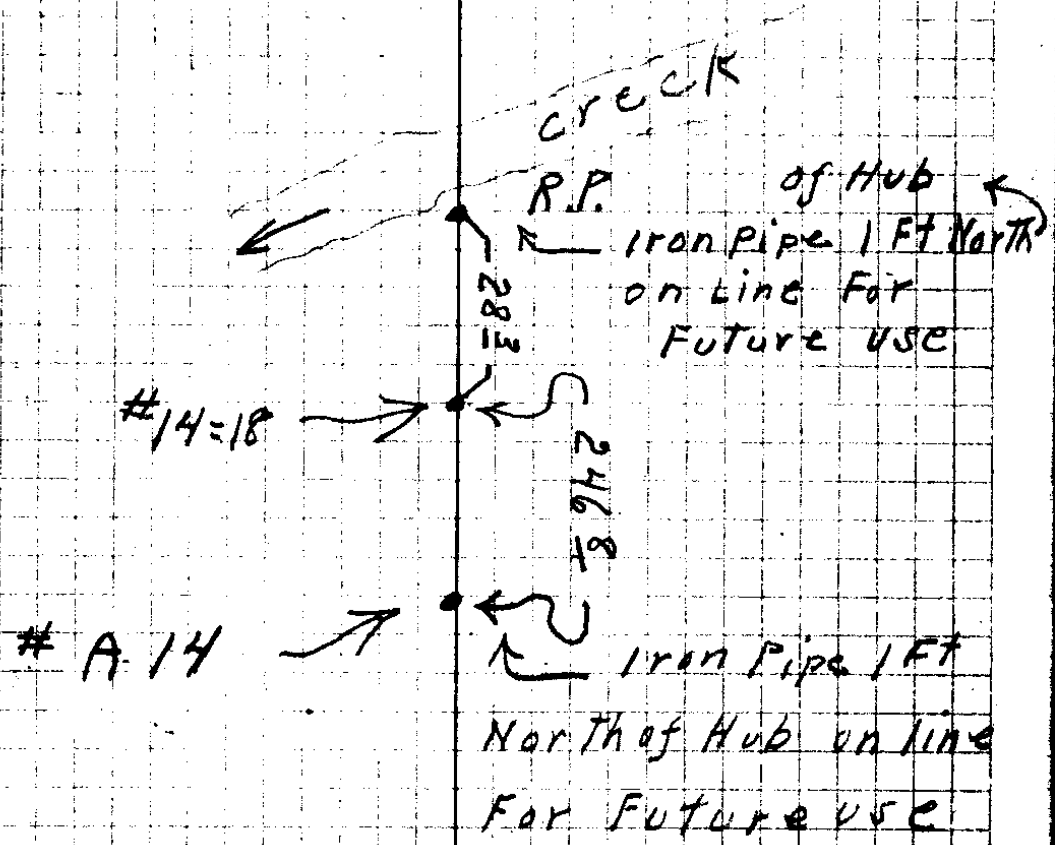 creek
R.P.
of Hub
Iron Pipe 1 Ft North
on Line For
Future use
#14=18
# A 14
Iron Pipe 1 Ft
North of Hub on line
For Future use